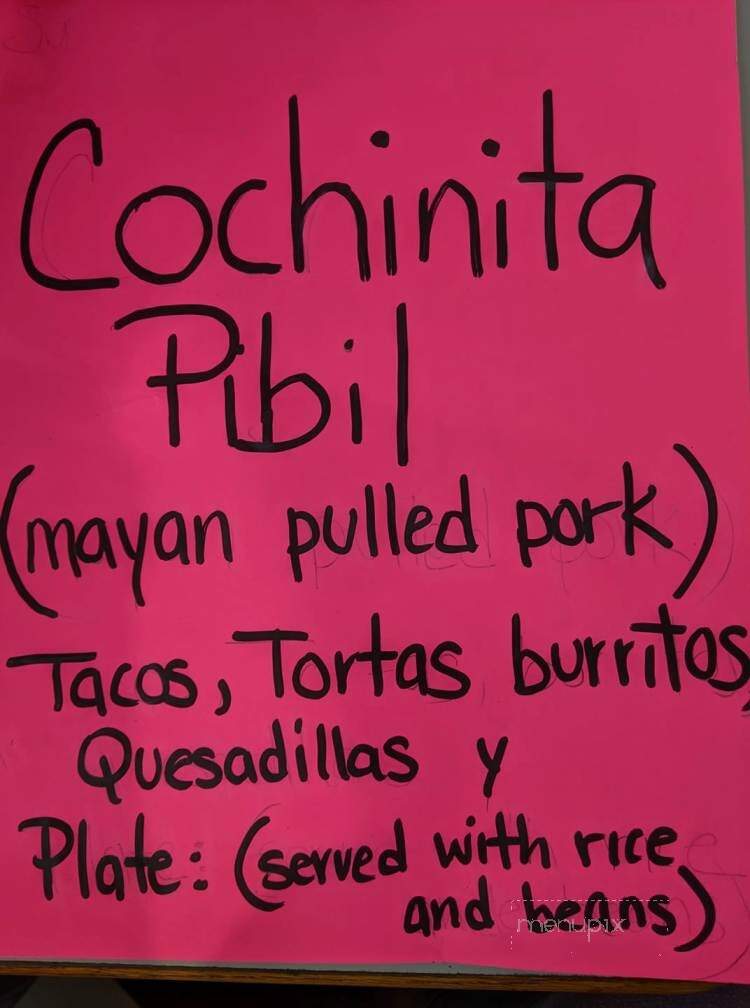 Cochinita
Pibil
(mayan pulled pork)
Tacos, Tortas burritos,
Quesadillas y
Plate: (served with rice
and beans)
menupix